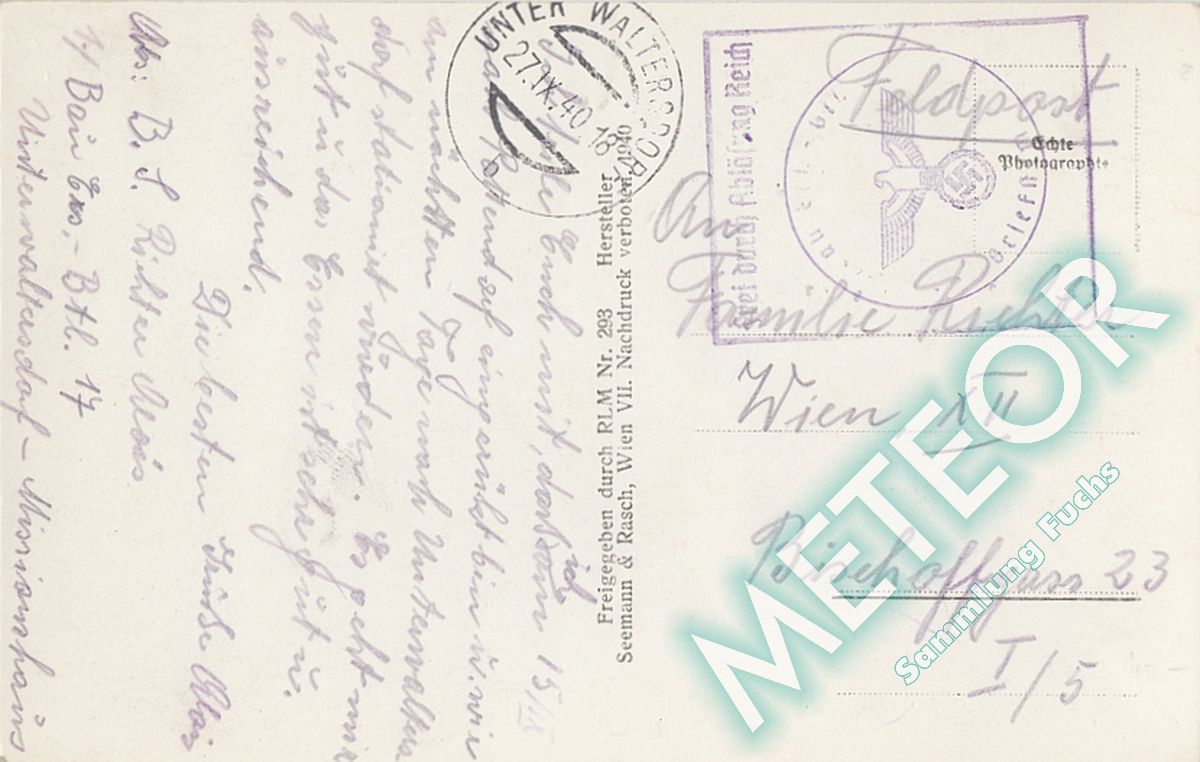 UNTER WALTERSDORF
27.IX.40.18
Frei durch Ablösung Reich
Feldpost
Echte
Photographie
An
Familie Richter
Wien XII
Bischoffgasse 23
I/5
Freigegeben durch RLM Nr. 293 Hersteller
Seemann & Rasch, Wien VII. Nachdruck verboten. 1940
Ich teile Euch mit, dass ich am 15/IX
nach eingerückt bin u. wir
am nächsten Tage nach Unterwalters
dorf stationiert wurden. Es geht mir
gut u. das Essen ist sehr gut u.
ausreichend.
Die besten Grüße Alois
Abs: B. S. Richter Alois
1/ Bau Ers.-Btl. 17
Unterwaltersdorf - Missionshaus
METEOR
Sammlung Fuchs